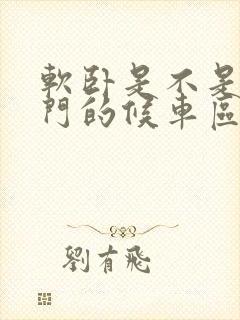 軟卧是不是
門的候車區
劉有飛